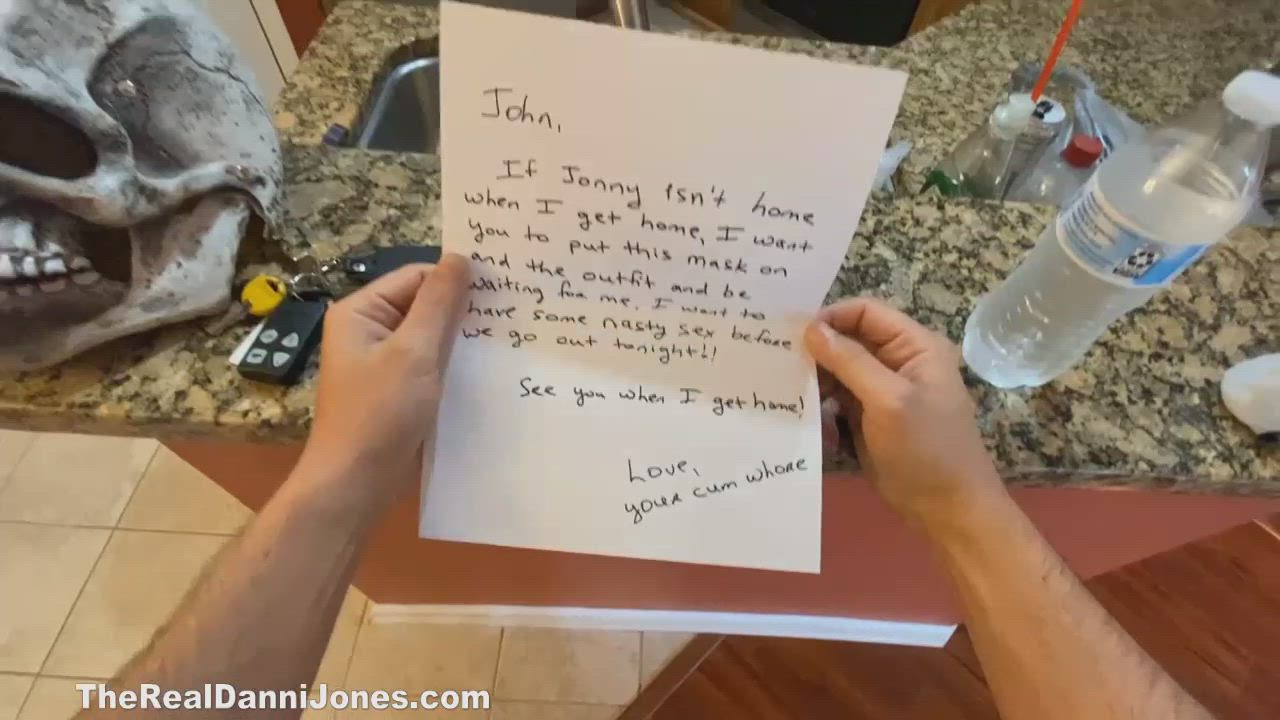 John,
If Jonny isn't home
when I get home, I want
you to put this mask on
and the outfit and be
waiting for me. I want to
have some nasty sex before
we go out tonight!!
See you when I get home!
Love,
your cum whore
TheRealDanniJones.com